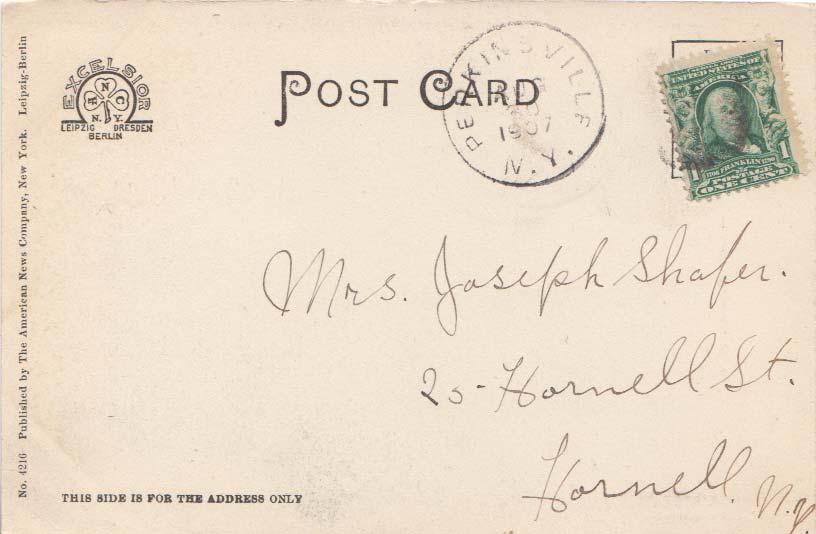 No. 4216 Published by The American News Company, New York. Leipzig-Berlin
EXCELSIOR
N
N.Y.
LEIPZIG DRESDEN
BERLIN
POST CARD
PERKINSVILLE
AUG
1907
N.Y.
UNITED STATES OF
AMERICA
1706 FRANKLIN 1790
1 POSTAGE 1
ONE CENT
Mrs. Joseph Shafer.
25 - Hornell St.
Hornell. N.Y.
THIS SIDE IS FOR THE ADDRESS ONLY